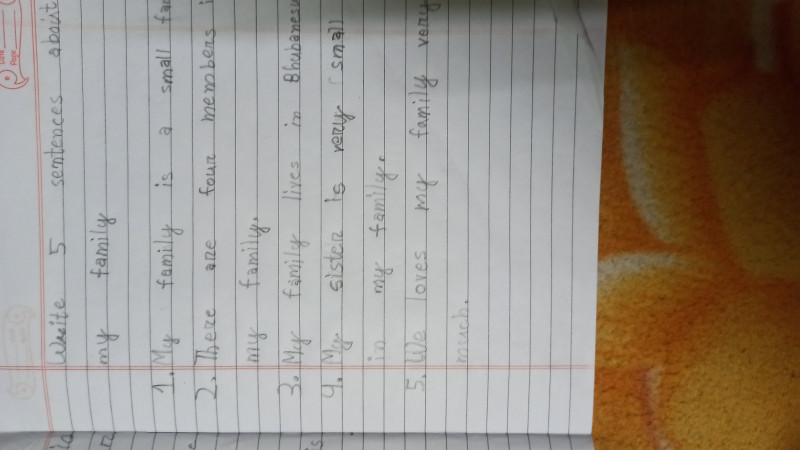 Write 5 sentences about
my family
1. My family is a small
2. There are four members
my family.
3. My family lives in
4. My sister is very small
in my family.
5. We loves my family very
much.
Date
Page